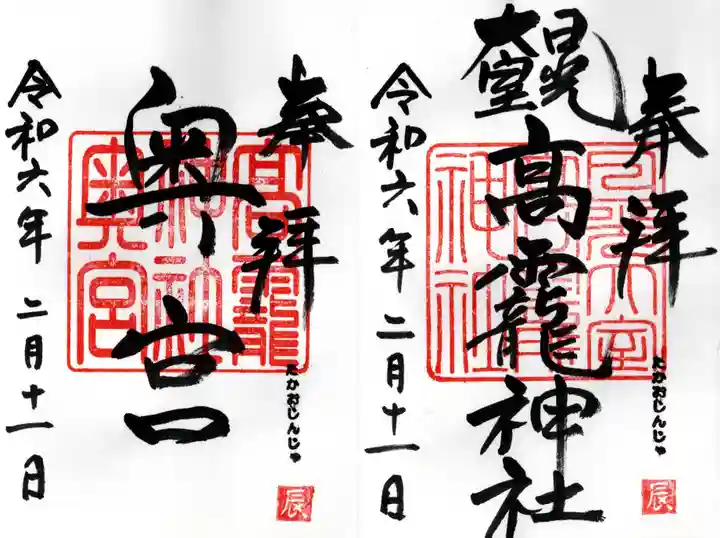 奉拝
たかおじんじゃ
辰
日光
大室
高龗神社
日光大室
神社
令和六年二月十一日
奉拝
たかおじんじゃ
辰
奥宮
高龗
神社
奥宮
令和六年二月十一日